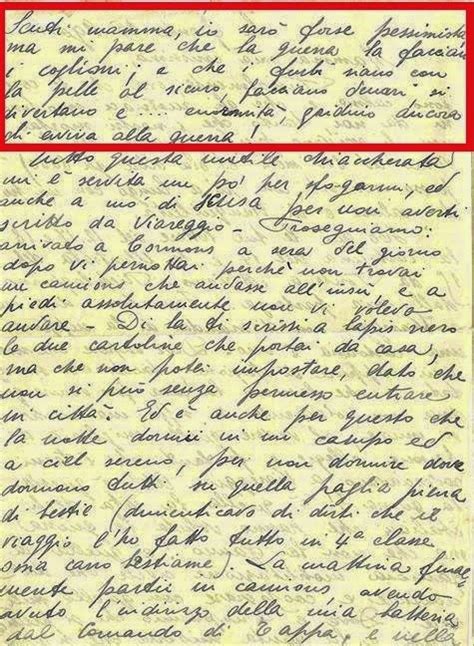 Senti mamma, io sarò forse pessimista
ma mi pare che la guerra la facciano
i coglioni, e che i furbi siano con
la pelle al sicuro, facciano denari si
divertano e .... enormità, gridino ancora
di evviva alla guerra!
Tutto questa inutile chiaccherata
mi è servita un po' per sfogarmi, ed
anche a mo' di scusa per non averti
scritto da Viareggio - Proseguiamo:
arrivato a Cormons a sera del giorno
dopo vi pernottai perchè non trovai
un camions che andasse all'insù e a
piedi assolutamente non vi volevo
andare - Di là ti scrissi a lapis nero
le due cartoline che portai da casa,
ma che non potei impostare, dato che
non si può senza permesso entrare
in città. Ed è anche per questo che
la notte dormii in un campo ed
a ciel sereno, per non dormire dove
dormono tutti su quella paglia piena
di bestie (dimenticavo di dirti che il
viaggio l'ho fatto tutto in 4ª classe
ossia carro bestiame). La mattina final=
mente partii in camions avendo
avuto l'indirizzo della mia batteria
dal Comando di Tappa, e nella